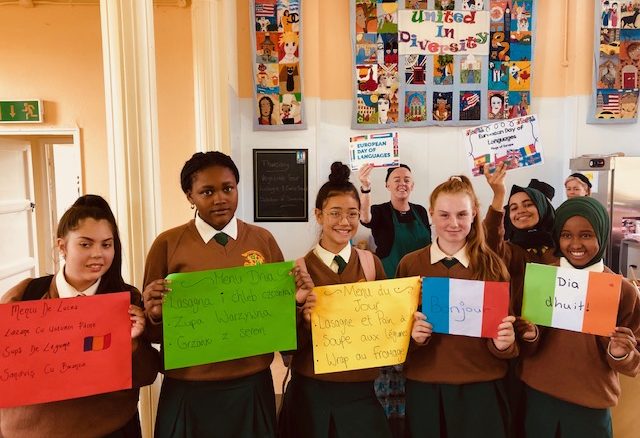 United In
Diversity
EUROPEAN
DAY OF
LANGUAGES
European Day of
Languages
Thursday
Meniu De Lucru
Lazaga Cu Usturoi Paine
Supa De Legume
Sandvis Cu Branza
Menu Dnia
Lasagna i chleb czosnkowy
Zupa Warzywna
Grzanki z serem
Menu du
Jour
Lasagne et Pain à
Soupe aux légumes
Wrap au Fromage
Bonjour
Dia
dhuit!